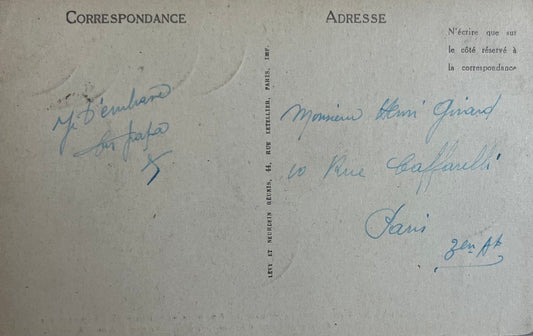 CORRESPONDANCE
ADRESSE
N'écrire que sur
le côté réservé à
la correspondance
Je t'embrasse
papa
Monsieur Henri Girard
10 Rue Caffarelli
Paris
3em Ar
LÉVY ET NEURDEIN RÉUNIS, 44, RUE LETELLIER, PARIS, IMP.